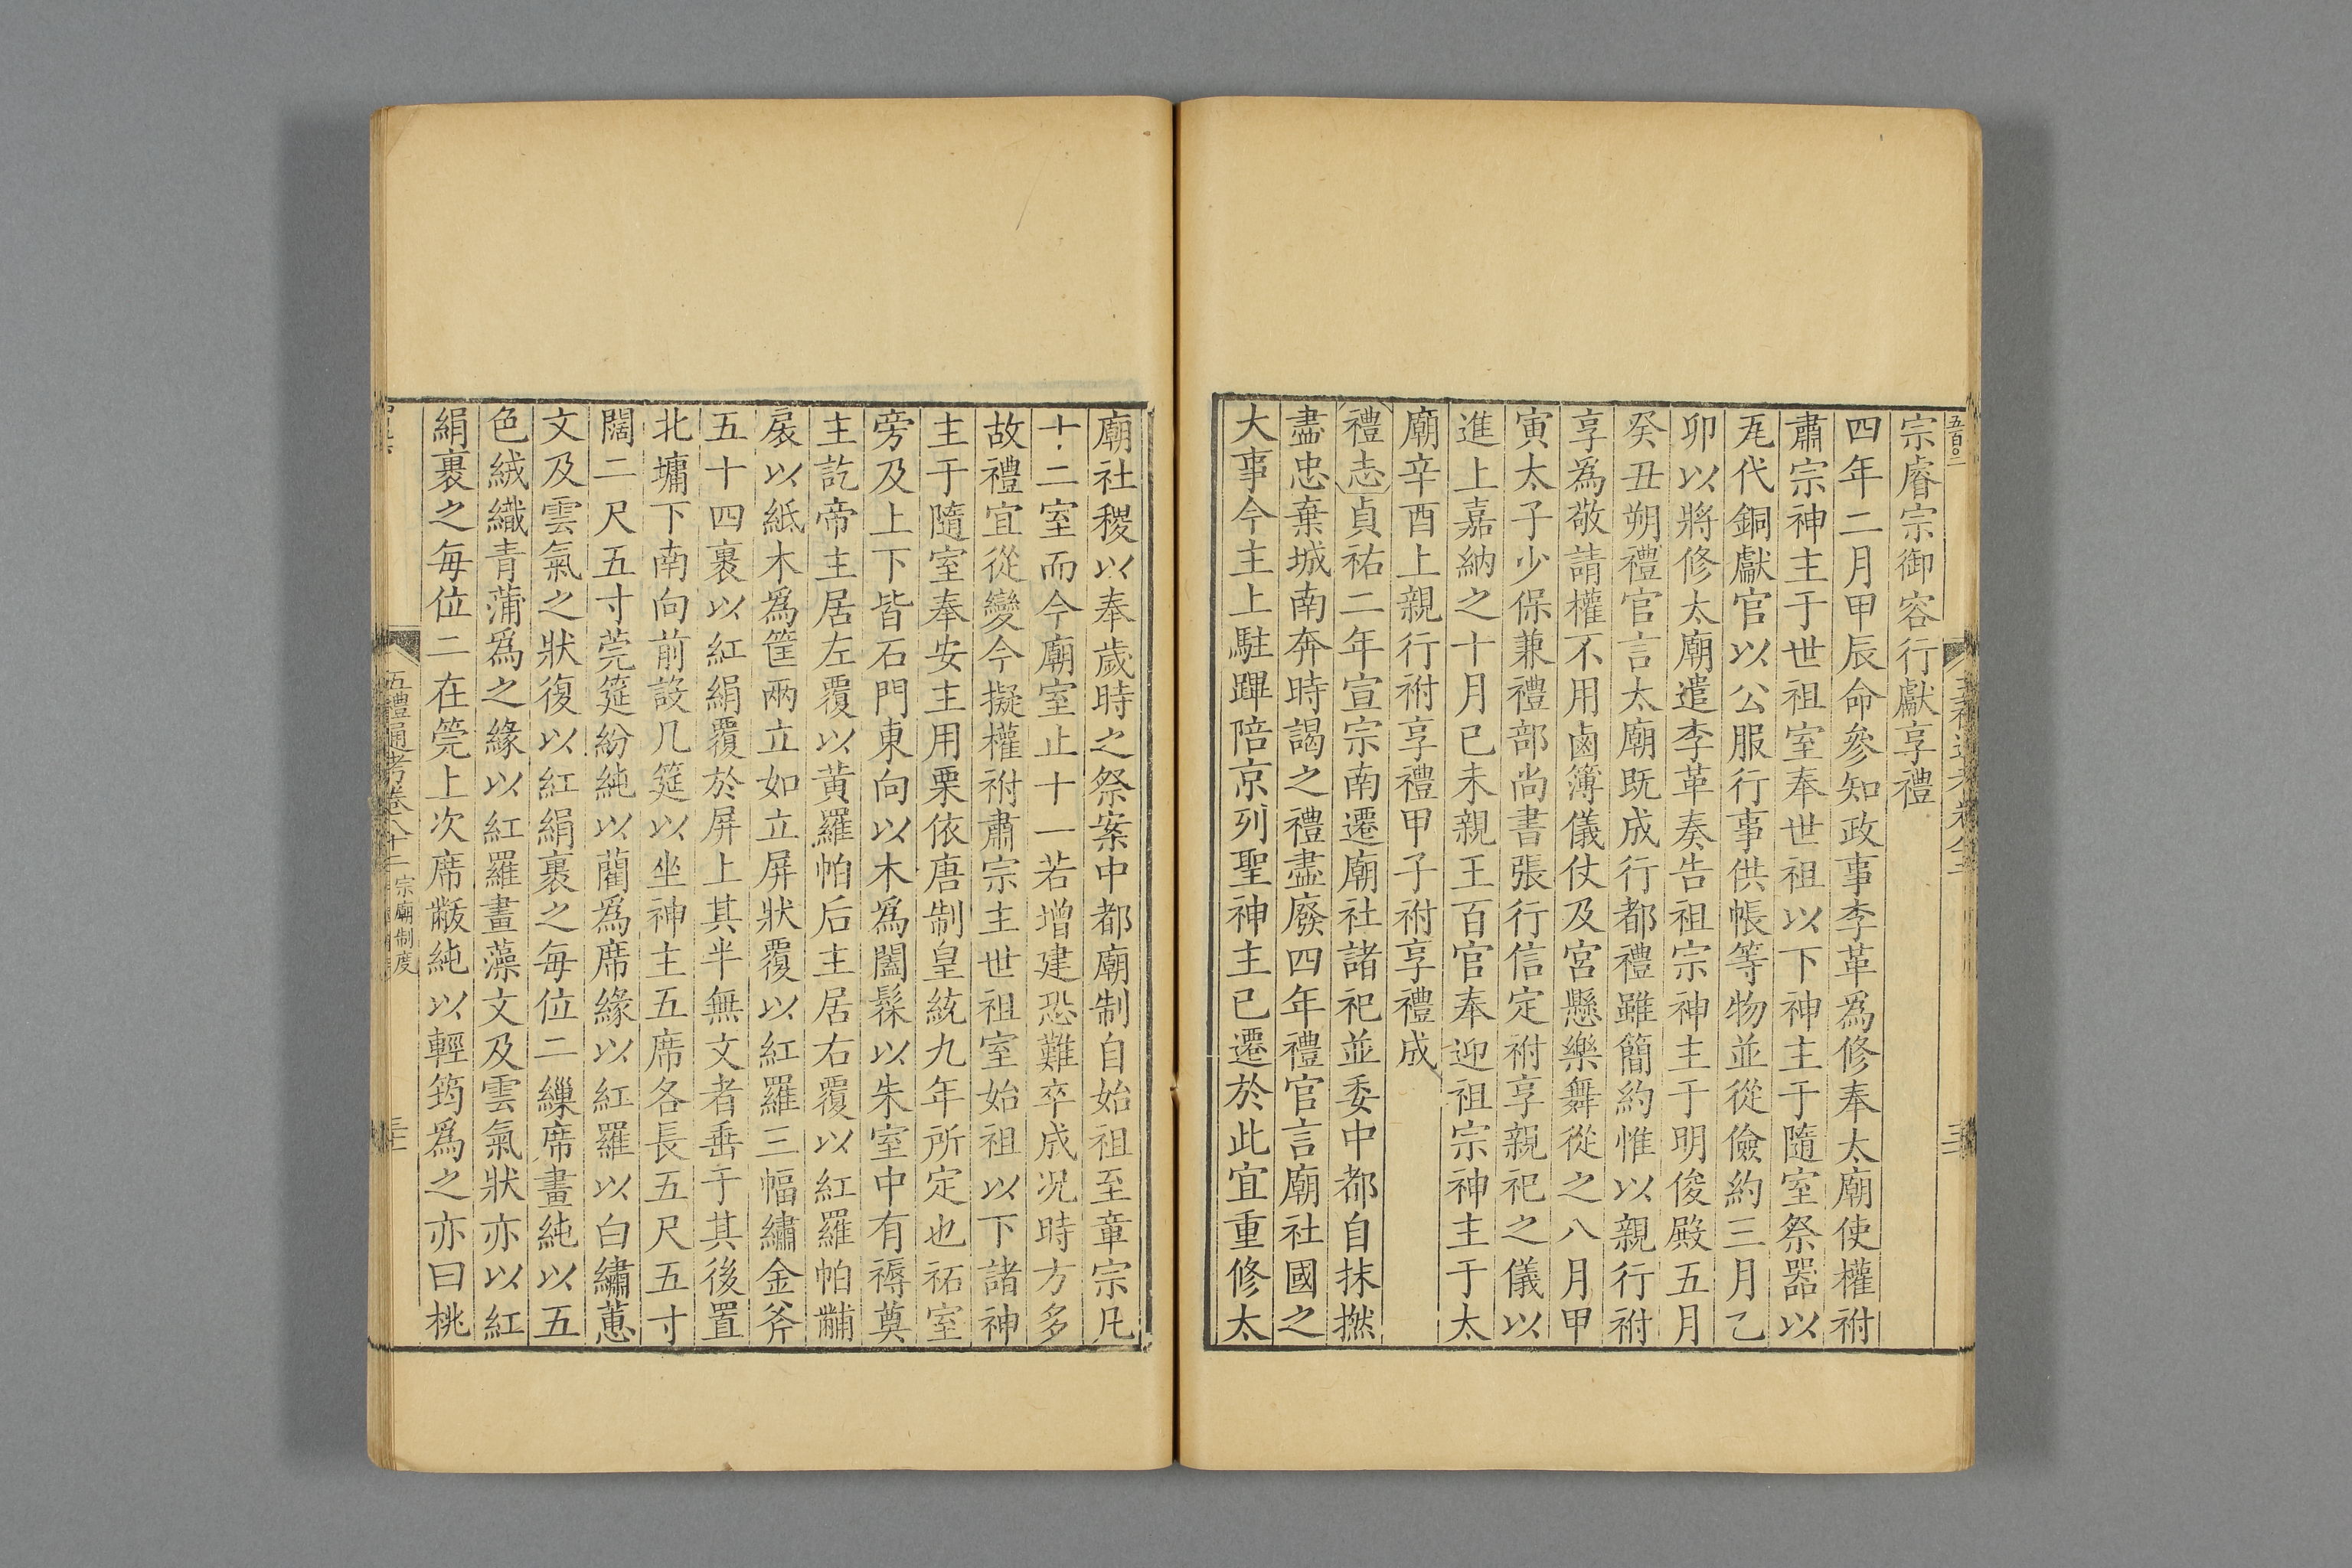 宗睿宗御容行獻享禮
四年二月甲辰命參知政事李革爲修奉太廟使權祔
肅宗神主于世祖室奉世祖以下神主于隨室祭器以
瓦代銅獻官以公服行事供帳等物並從儉約三月乙
卯以將修太廟遣李革奏告祖宗神主于明俊殿五月
癸丑朔禮官言太廟既成行都禮雖簡約惟以親行祔
享爲敬請權不用鹵簿儀仗及宮懸樂舞從之八月甲
寅太子少保兼禮部尚書張行信定祔享親祀之儀以
進上嘉納之十月己未親王百官奉迎祖宗神主于太
廟辛酉上親行祔享禮甲子祔享禮成
禮志貞祐二年宣宗南遷廟社諸祀並委中都自抹撚
盡忠棄城南奔時謁之禮盡廢四年禮官言廟社國之
大事今主上駐蹕陪京列聖神主已遷於此宜重修太
廟社稷以奉歲時之祭案中都廟制自始祖至章宗凡
十二室而今廟室止十一若增建恐難卒成况時方多
故禮宜從變今擬權祔肅宗主世祖室始祖以下諸神
主于隨室奉安主用栗依唐制皇統九年所定也祏室
旁及上下皆石門東向以木爲闔髹以朱室中有褥奠
主訖帝主居左覆以黄羅帕后主居右覆以紅羅帕黼
扆以紙木爲筐兩立如立屏狀覆以紅羅三幅繡金斧
五十四裏以紅絹覆於屏上其半無文者垂于其後置
北墉下南向前設几筵以坐神主五席各長五尺五寸
闊二尺五寸莞筵紛純以藺爲席緣以紅羅以白繡蕙
文及雲氣之狀復以紅絹裏之每位二繅席畫純以五
色絨織青蒲爲之緣以紅羅畫藻文及雲氣狀亦以紅
絹裏之每位二在筦上次席黻純以輕筠爲之亦曰桃
五禮通考卷八十二 宗廟制度